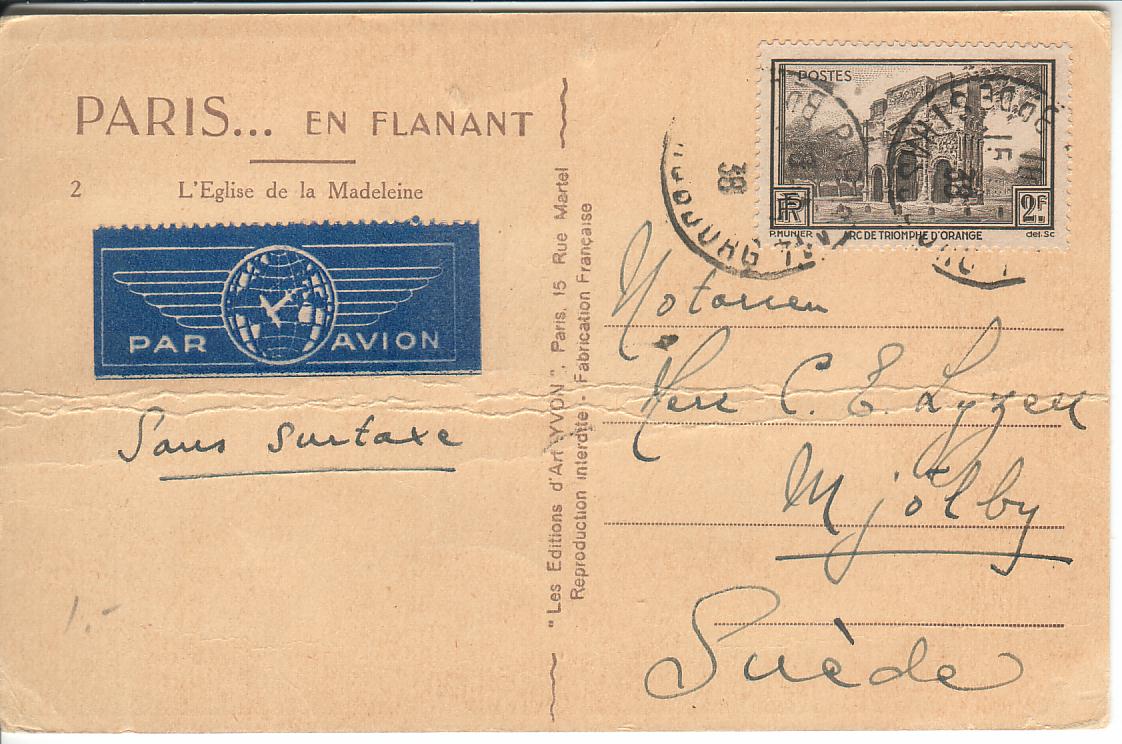 PARIS... EN FLANANT
2 L'Eglise de la Madeleine
PAR AVION
Sans surtaxe
1.-
"Les Editions d'Art YVON", Paris, 15 Rue Martel
Reproduction interdite - Fabrication Française
POSTES
RF
2F
P.MUNIER ARC DE TRIOMPHE D'ORANGE del.Sc
38
38
Notarien
Herr C. E. Lyzell
Mjölby
Suède